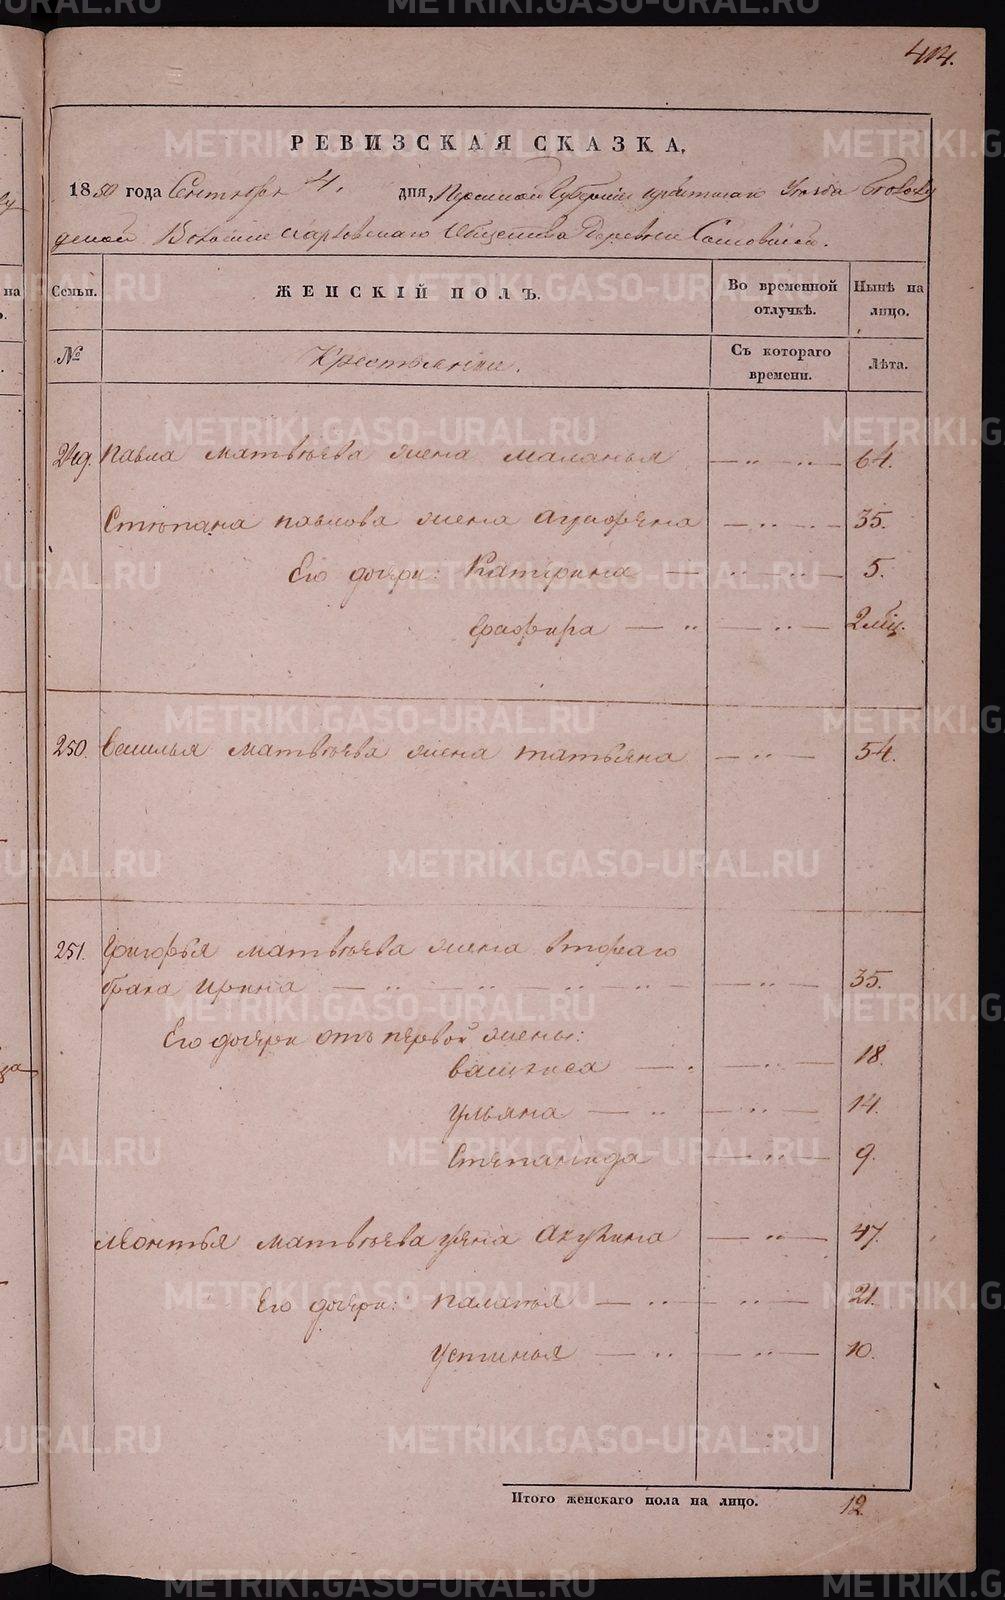 414.
РЕВИЗСКАЯ СКАЗКА,
1850 года Сентября 4. дня, Пермской Губернии Ирбитскаго Уезда
Волости Общества Деревни
Семьи. ЖЕНСКІЙ ПОЛЪ. Во временной отлучкѣ. Нынѣ на лицо.
№ Крестьянки. Съ котораго времени. Лѣта.
249. Павла Матвѣева жена Маланья — " — " — 64.
Степана Павлова жена Аграфена — " — 35.
Его дочери: Катерина — " — " — 5.
— " — " — 2 мѣц.
250. Василья Матвѣева жена Татьяна — " — 54.
251. Григорья Матвѣева жена втораго
брака Ирина — " — " — " — " — 35.
Его дочери отъ первой жены:
Василиса — " — 18.
Ульяна — " — " — 14.
Степанида — " — 9.
Леонтья Матвѣева жена Акулина — " — 47.
Его дочери: Паланья — " — " — 21.
Устинья — " — " — 10.
Итого женскаго пола на лицо. 12.
METRIKI.GASO-URAL.RU